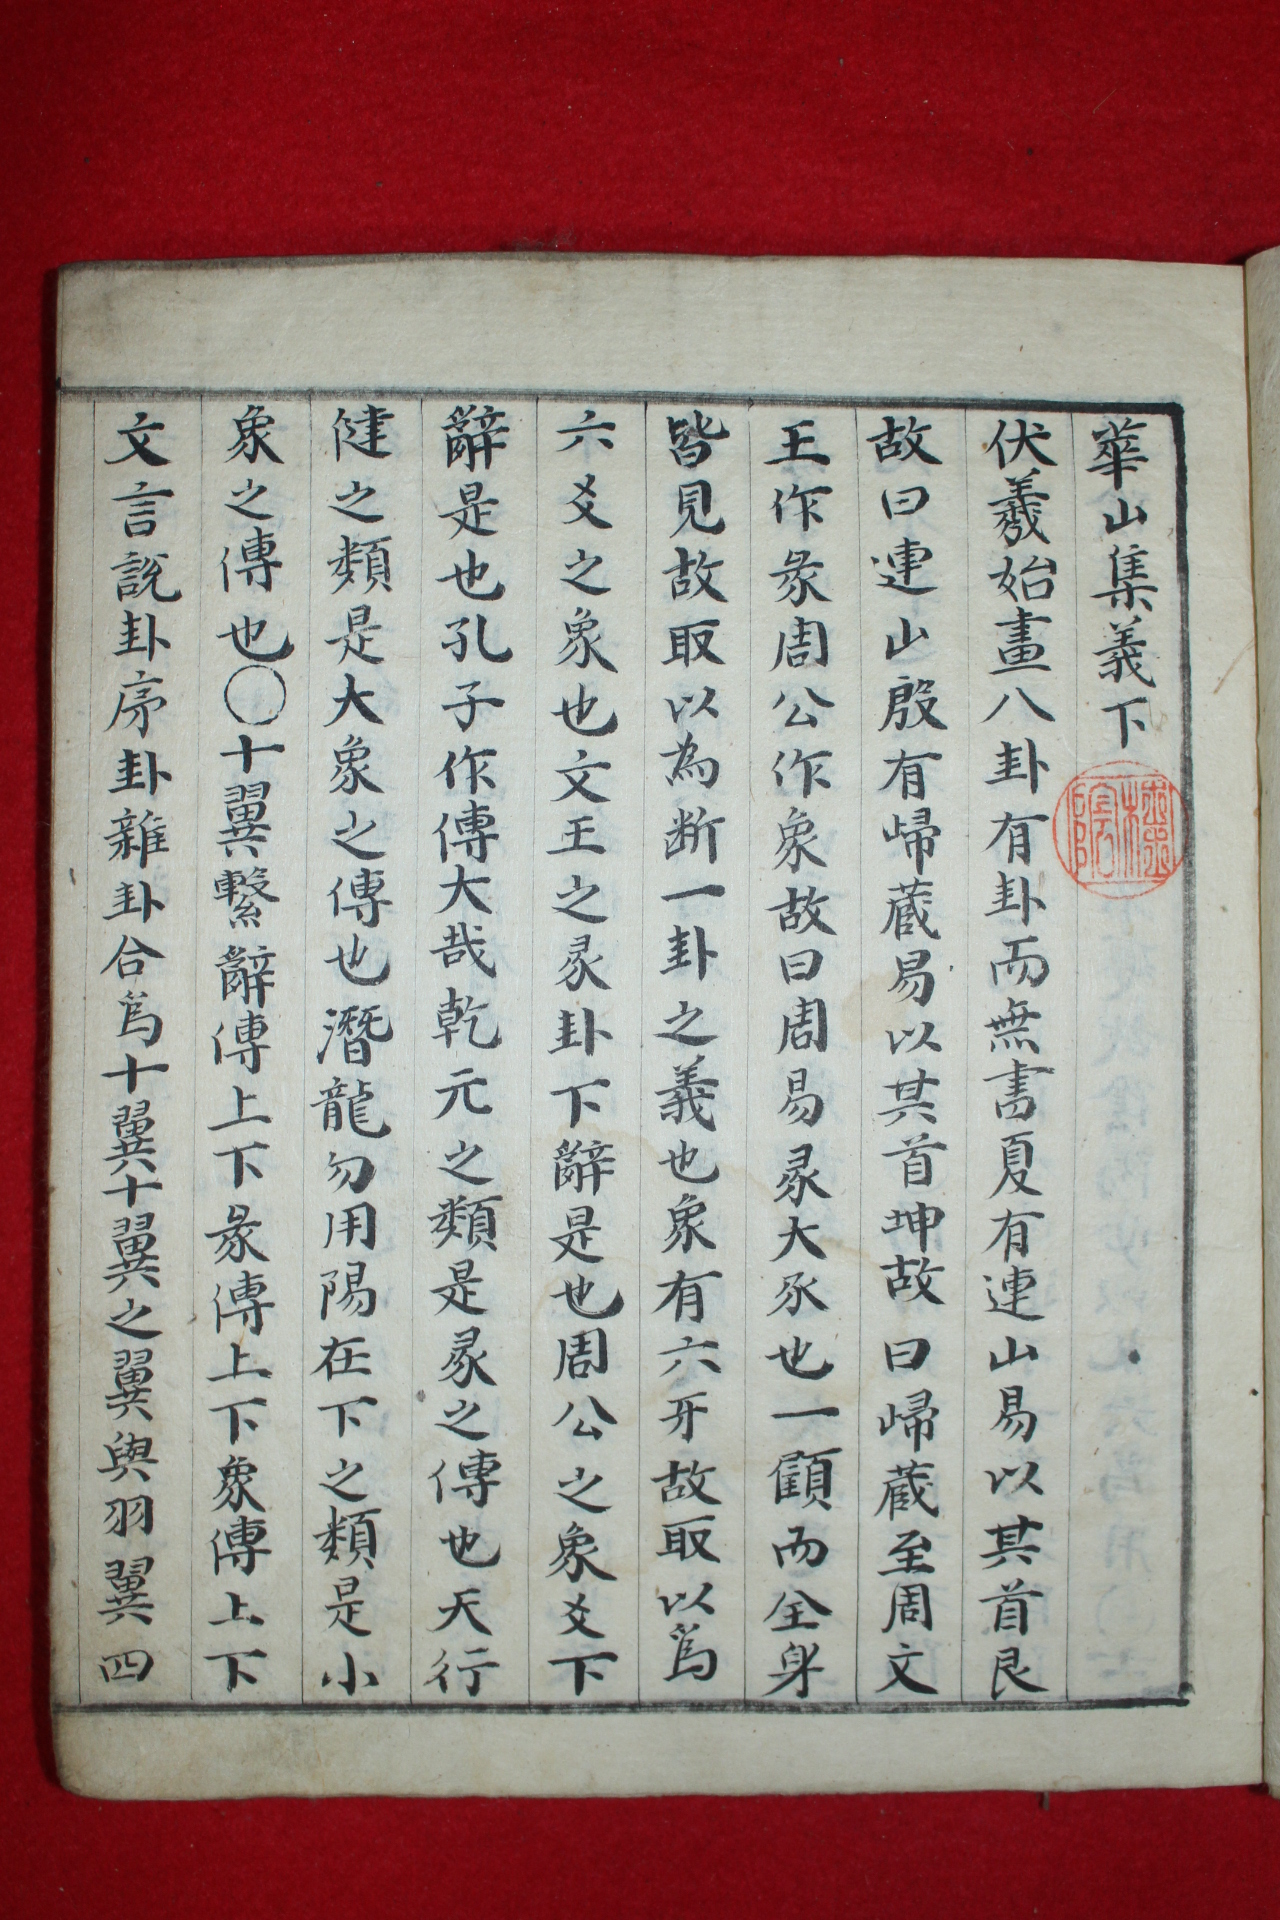 華山集義下
伏羲始畫八卦有卦而無書夏有連山易以其首艮
故曰連山殷有歸藏易以其首坤故曰歸藏至周文
王作彖周公作象故曰周易彖大豕也一顧而全身
皆見故取以為断一卦之義也象有六牙故取以爲
六爻之象也文王之彖卦下辭是也周公之象爻下
辭是也孔子作傳大哉乾元之類是彖之傳也天行
健之類是大象之傳也潛龍勿用陽在下之類是小
象之傳也○十翼繫辭傳上下彖傳上下象傳上下
文言說卦序卦雜卦合爲十翼十翼之翼與羽翼四